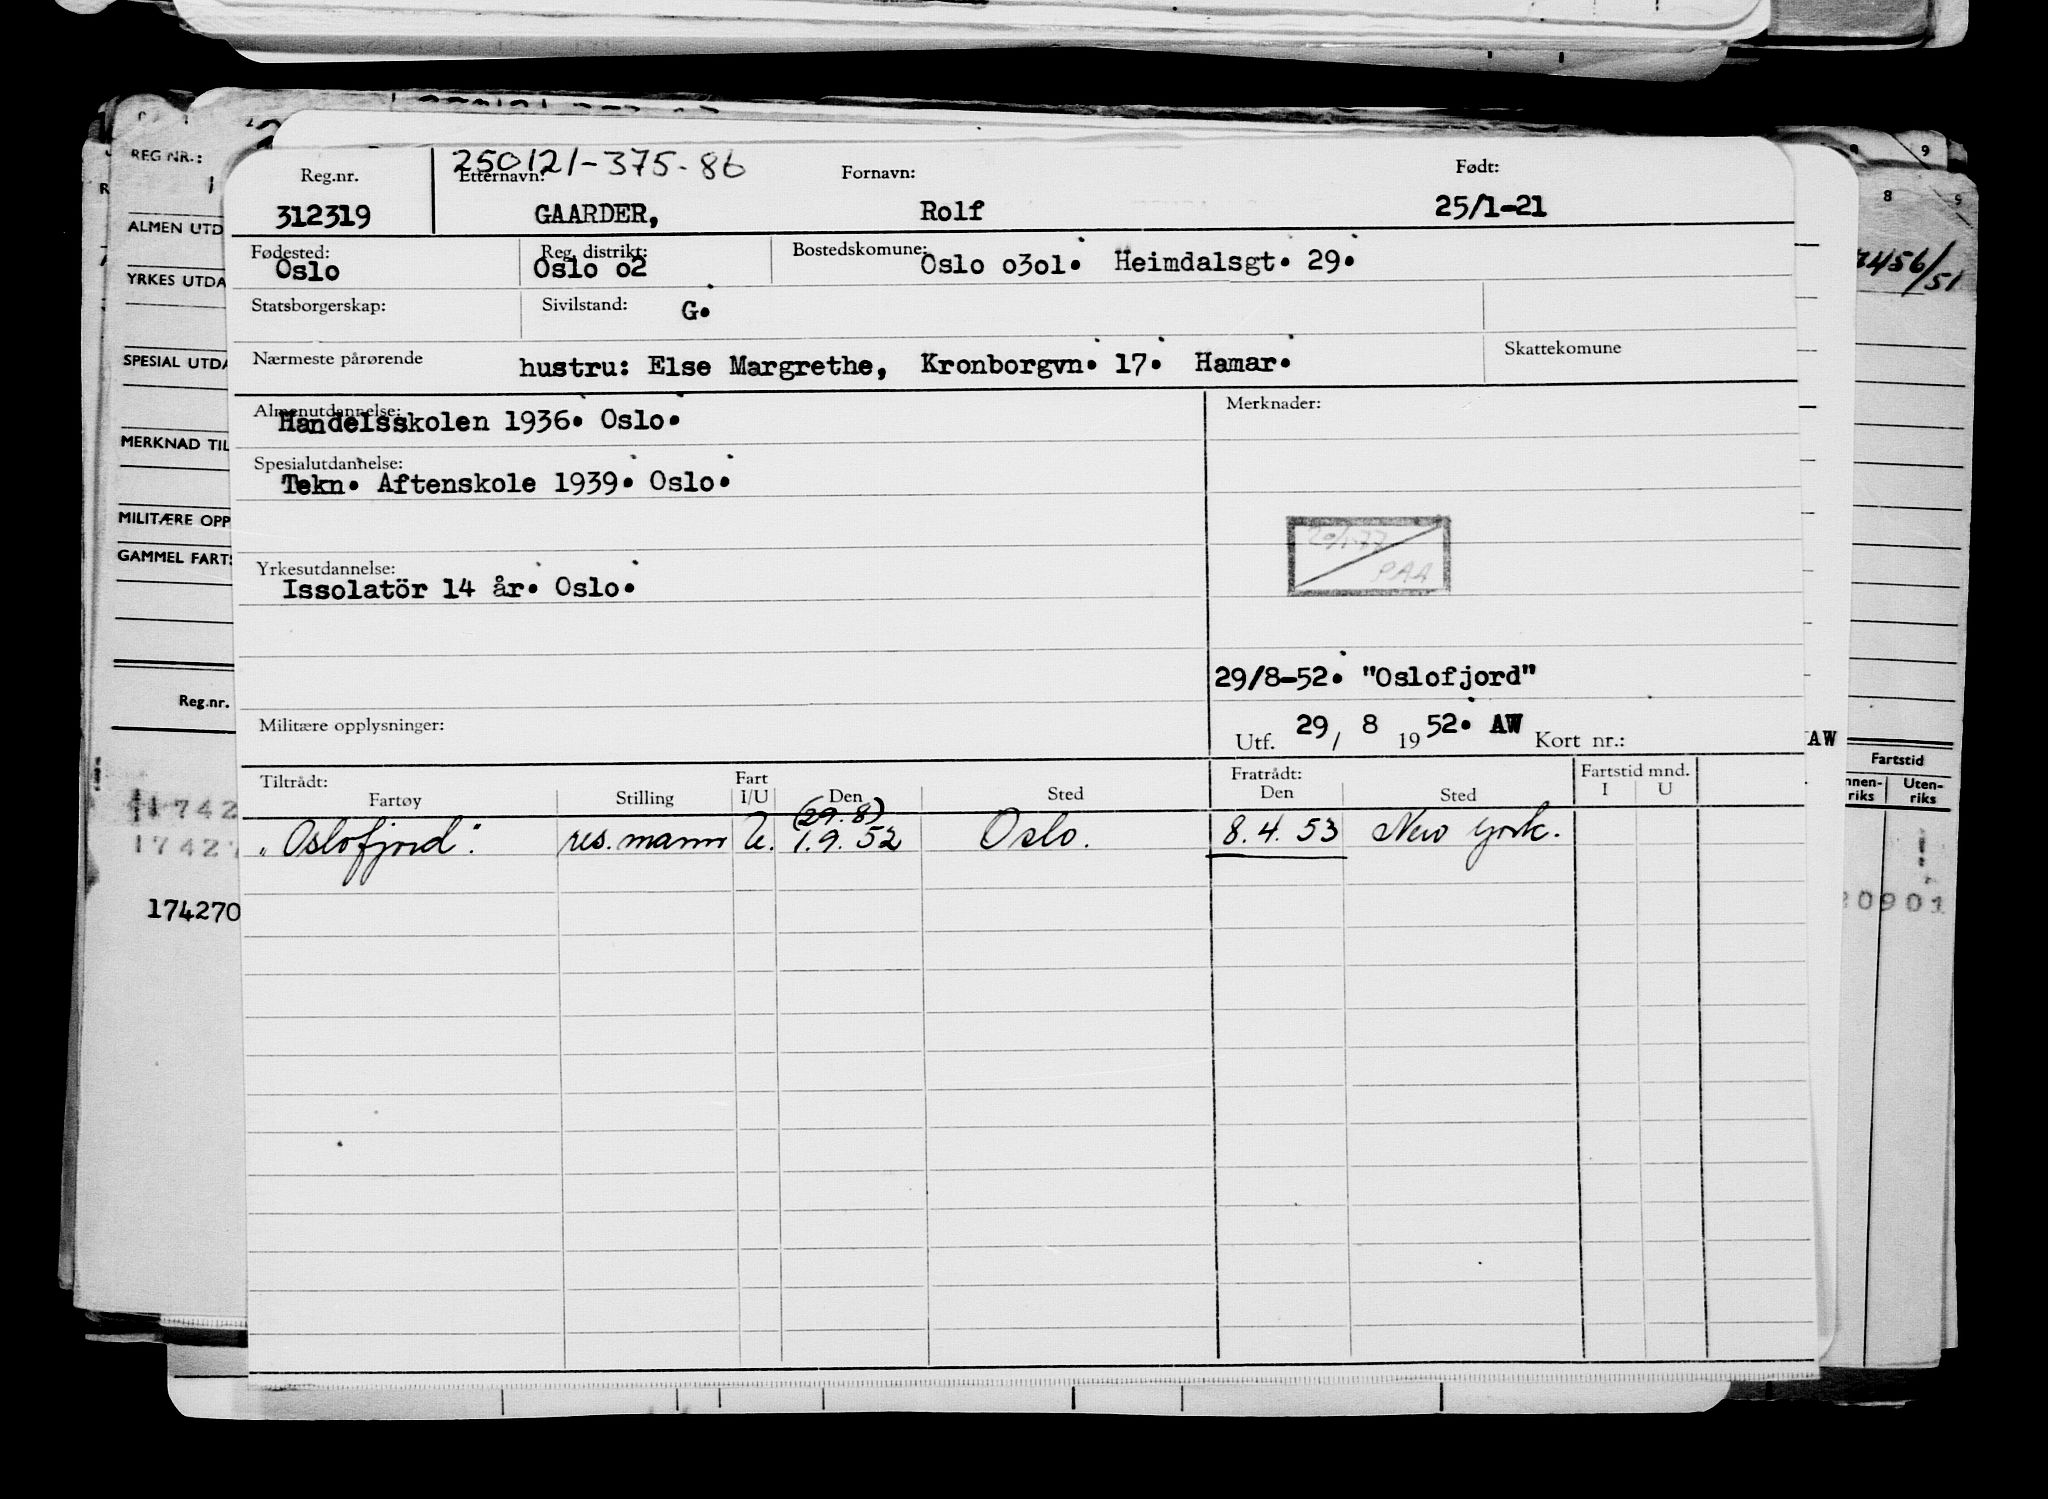 250121-375-86
Reg.nr. Etternavn: Fornavn: Født:
312319 GAARDER, Rolf 25/1-21
Fødested: Reg. distrikt: Bostedskomune:
Oslo Oslo o2 Oslo o3o1. Heimdalsgt. 29.
Statsborgerskap: Sivilstand: G.
Nærmeste pårørende hustru: Else Margrethe, Kronborgvn. 17. Hamar. Skattekomune
Almenutdannelse: Merknader:
Handelsskolen 1936. Oslo.
Spesialutdannelse:
Tekn. Aftenskole 1939. Oslo.
PAA
Yrkesutdannelse:
Issolatör 14 år. Oslo.
29/8-52. "Oslofjord"
Militære opplysninger: Utf. 29/ 8 1952. AW Kort nr.:
Tiltrådt: Fart Fratrådt: Fartstid mnd.
Fartøy Stilling I/U Den Sted Den Sted I U
(29.8)
"Oslofjord". res. mann U. 1.9.52 Oslo. 8.4.53 New York.
REG NR.:
ALMEN UTD
YRKES UTDA
SPESIAL UTDA
MERKNAD TIL
MILITÆRE OPP
GAMMEL FARTS
Reg.nr.
1742
17427
174270
9
8 9
2456/51
AW
Fartstid
nnen-riks Uten-riks
20901